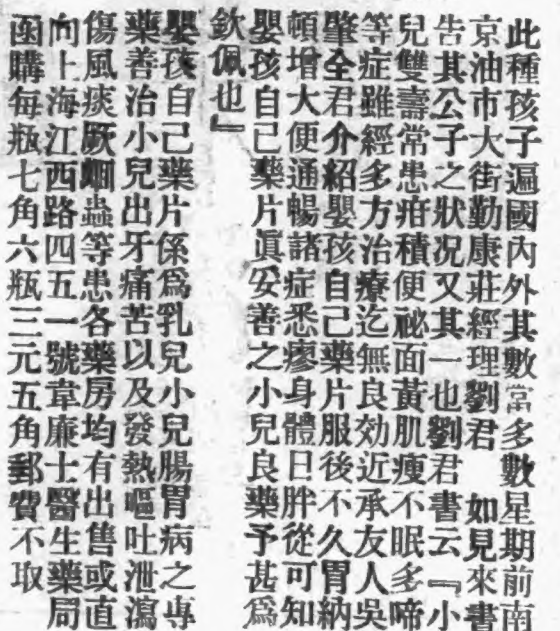 此種孩子遍國內外其數當多數星期前南
京油市大街勤康莊經理劉君　如見來書
告其公子之狀况又其一也劉君書云『小
兒雙壽常患疳積便祕面黃肌瘦不眠多啼
等症雖經多方治療迄無良効近承友人吳
肇全君介紹嬰孩自己藥片服後不久胃納
頓增大便通暢諸症悉瘳身體日胖從可知
嬰孩自己藥片眞妥善之小兒良藥予甚爲
欽佩也』
嬰孩自己藥片係爲乳兒小兒腸胃病之專
藥善治小兒出牙痛苦以及發熱嘔吐泄瀉
傷風痰厥蛔蟲等患各藥房均有出售或直
向上海江西路四五一號韋廉士醫生藥局
函購每瓶七角六瓶三元五角郵費不取